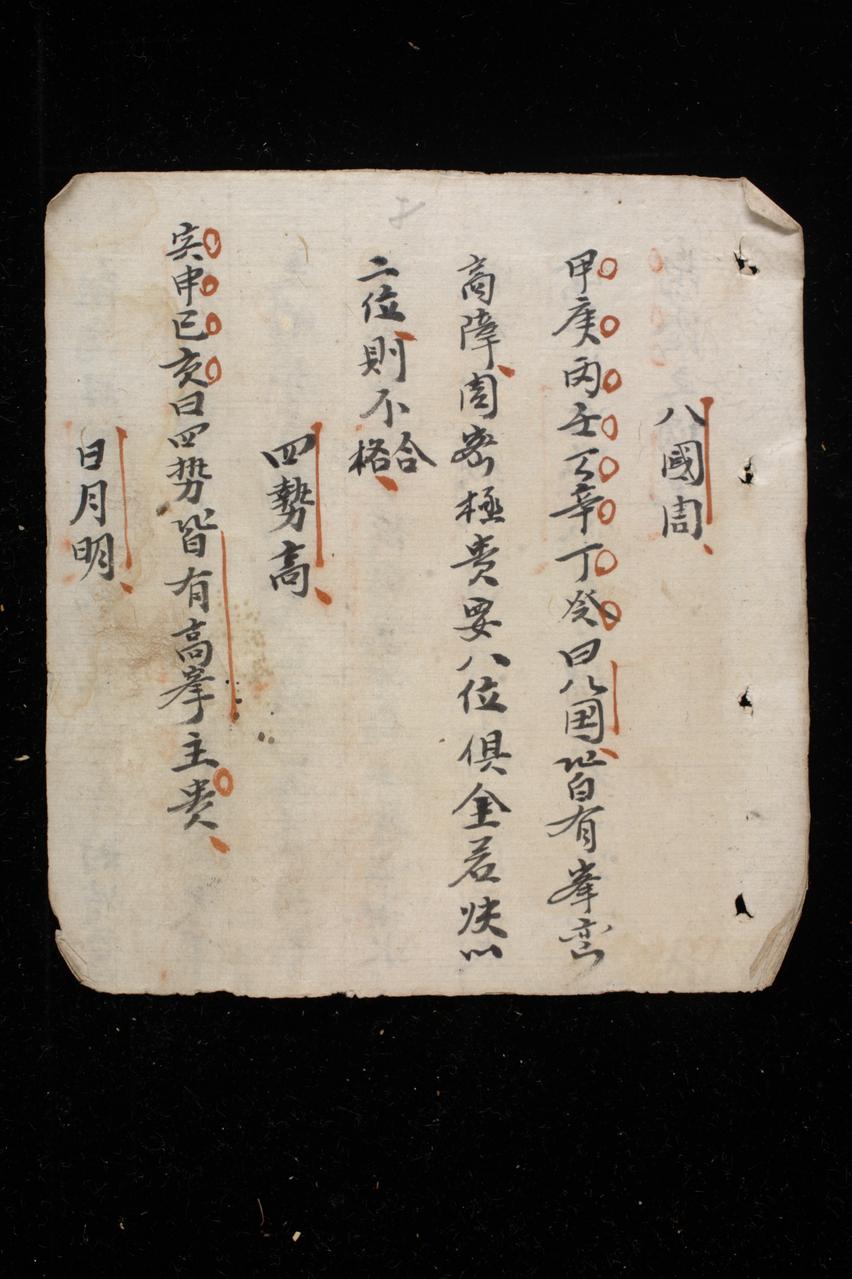 八國周
甲庚丙壬乙辛丁癸曰八国皆有峯峦
高障周密極贵要八位俱全若缺以
二位則不合格
四勢高
寅申巳亥曰四势皆有高峯主贵
日月明